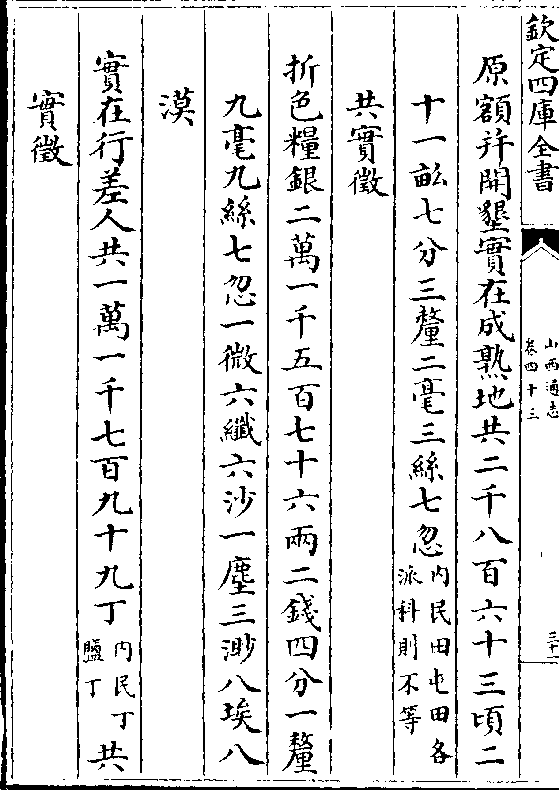 欽定四庫全書
山西通志
卷四十三
三十一
原額并開墾實在成熟地共二千八百六十三頃二
十一畝七分三釐二毫三絲七忽內民田屯田各
派科則不等
共實徵
折色糧銀二萬一千五百七十六兩二錢四分一釐
九毫九絲七忽一微六纖六沙一塵三渺八埃八
漠
實在行差人共一萬一千七百九十九丁內民丁
鹽丁
共
實徵